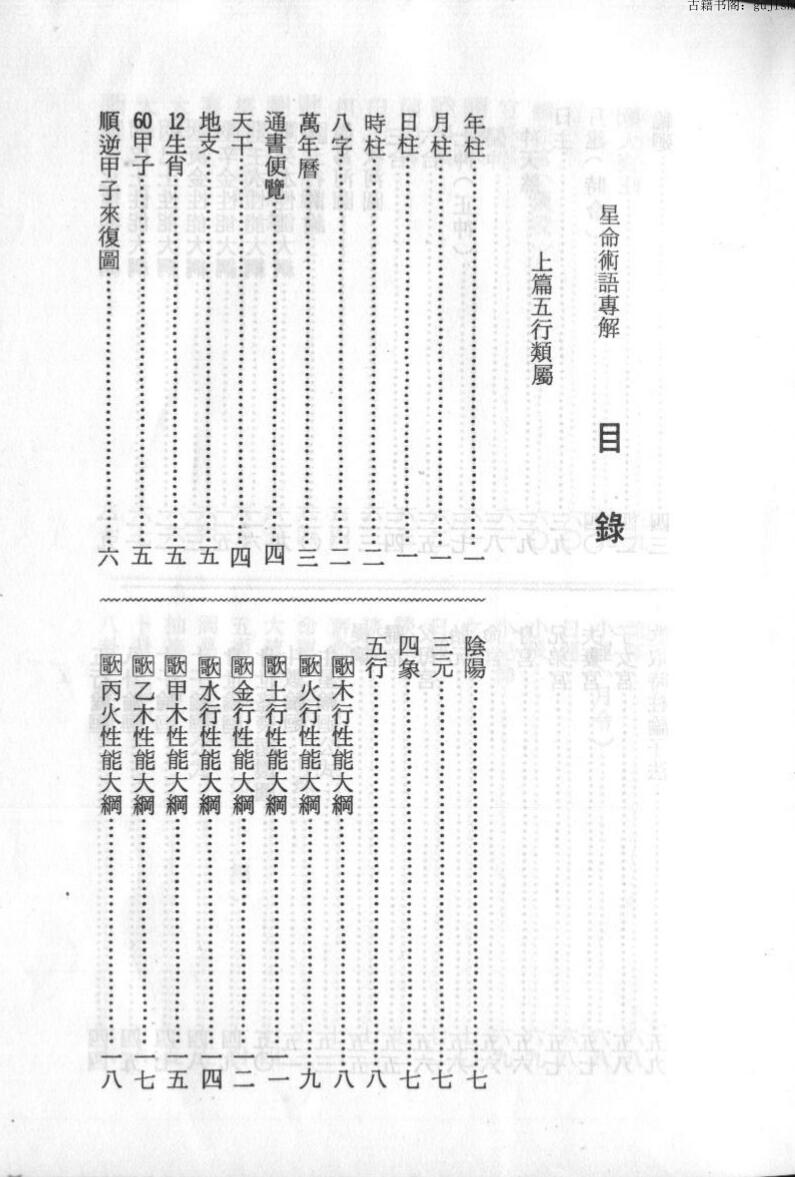 古籍书阁：gujish
星命術語專解　目錄
上篇五行類屬
年柱……一
月柱……一
日柱……一
時柱……二
八字……二
萬年曆……三
通書便覽……四
天干……四
地支……五
12生肖……五
60甲子……五
順逆甲子來復圖……六
陰陽……七
三元……七
四象……七
五行……八
歌木行性能大綱……八
歌火行性能大綱……九
歌土行性能大綱……一一
歌金行性能大綱……一二
歌水行性能大綱……一四
歌甲木性能大綱……一五
歌乙木性能大綱……一七
歌丙火性能大綱……一八